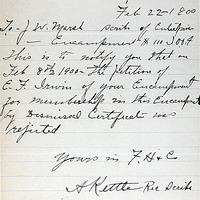 Feb 22-1900
To - J W. Marsh scribe of Enterprise
Encampment # 110 I O O F
This is to notify you that on
Feb 8th 1900 the petition of
E. F. Irwin of your Encampment
for membership in this Encampment
by Dismissal Certificate was
rejected
Yours in F. H & C
A Kettle Rec Scribe